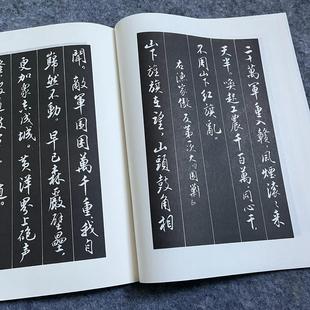 二十萬軍重入贛，風煙滾滾來
天半。喚起工農千百萬，同心干，
不周山下紅旗亂。
右漁家傲 反第一次大圍剿
山下旌旗在望，山頭鼓角相
聞。敵軍圍困萬千重，我自
巋然不動。早已森嚴壁壘，
更加眾志成城。黃洋界上砲声